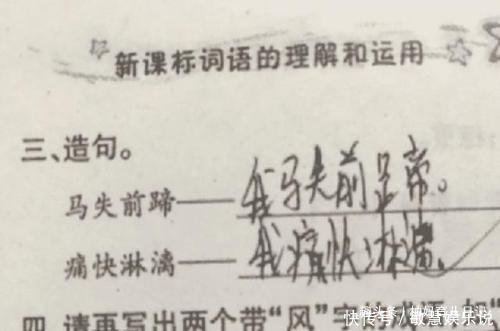 新课标词语的理解和运用
三、造句。
马失前蹄——我马失前蹄。
痛快淋漓——我痛快淋漓。
四、请再写出两个带“风”字
快传号/敏慧娱乐说